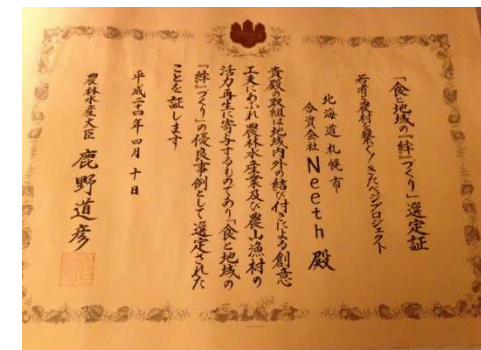 「食と地域の『絆』づくり」選定証
若者よ農村を築く!きたベジプロジェクト
北海道札幌市
合資会社Neeth殿
貴殿の取組は地域内外の結び付きによる創意
工夫にあふれ農林水産業及び農山漁村の
活力再生に寄与するものであり「食と地域の
『絆』づくり」の優良事例として選定された
ことを証します
平成二四年四月十日
農林水産大臣 鹿野道彦